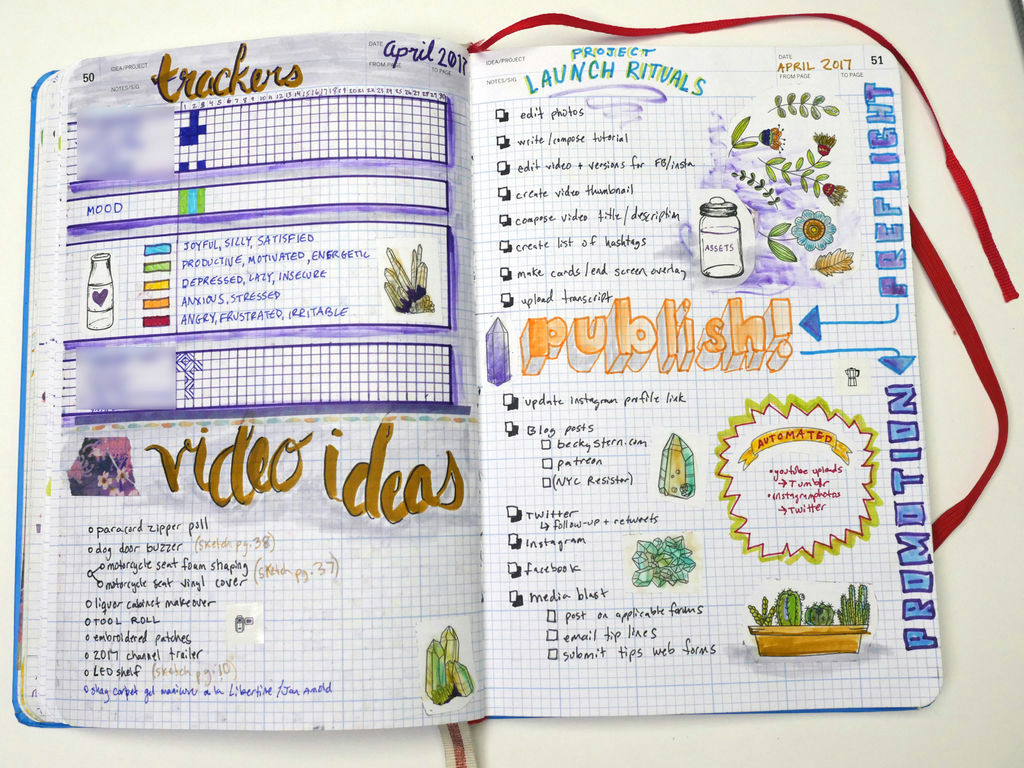 50
IDEA/PROJECT
NOTES/SIG
DATE April 2017
FROM PAGE
TO PAGE
trackers
1 2 3 4 5 6 7 8 9 10 11 12 13 14 15 16 17 18 19 20 21 22 23 24 25 26 27 28 29 30
MOOD
JOYFUL, SILLY, SATISFIED
PRODUCTIVE, MOTIVATED, ENERGETIC
DEPRESSED, LAZY, INSECURE
ANXIOUS, STRESSED
ANGRY, FRUSTRATED, IRRITABLE
video ideas
paracord zipper pull
dog door buzzer (sketch pg. 38)
motorcycle seat foam shaping
motorcycle seat vinyl cover (sketch pg. 37)
liquor cabinet makeover
TOOL ROLL
embroidered patches
2017 channel trailer
LED shelf (sketch pg. 10)
shag carpet gel manicure a la Libertine / Jan Arnold
IDEA/PROJECT
NOTES/SIG
PROJECT
LAUNCH RITUALS
DATE
APRIL 2017
FROM PAGE
TO PAGE
51
edit photos
write/compose tutorial
edit video + versions for FB/insta
create video thumbnail
compose video title/description
create list of hashtags
make cards/end screen overlay
upload transcript
ASSETS
PREFLIGHT
publish!
update instagram profile link
Blog posts
beckystern.com
patreon
(NYC Resistor)
Twitter
↳ follow-up + retweets
Instagram
facebook
media blast
post on applicable forums
email tip lines
submit tips web forms
AUTOMATED
• youtube uploads
→ Tumblr
• instagram photos
→ Twitter
PROMOTION